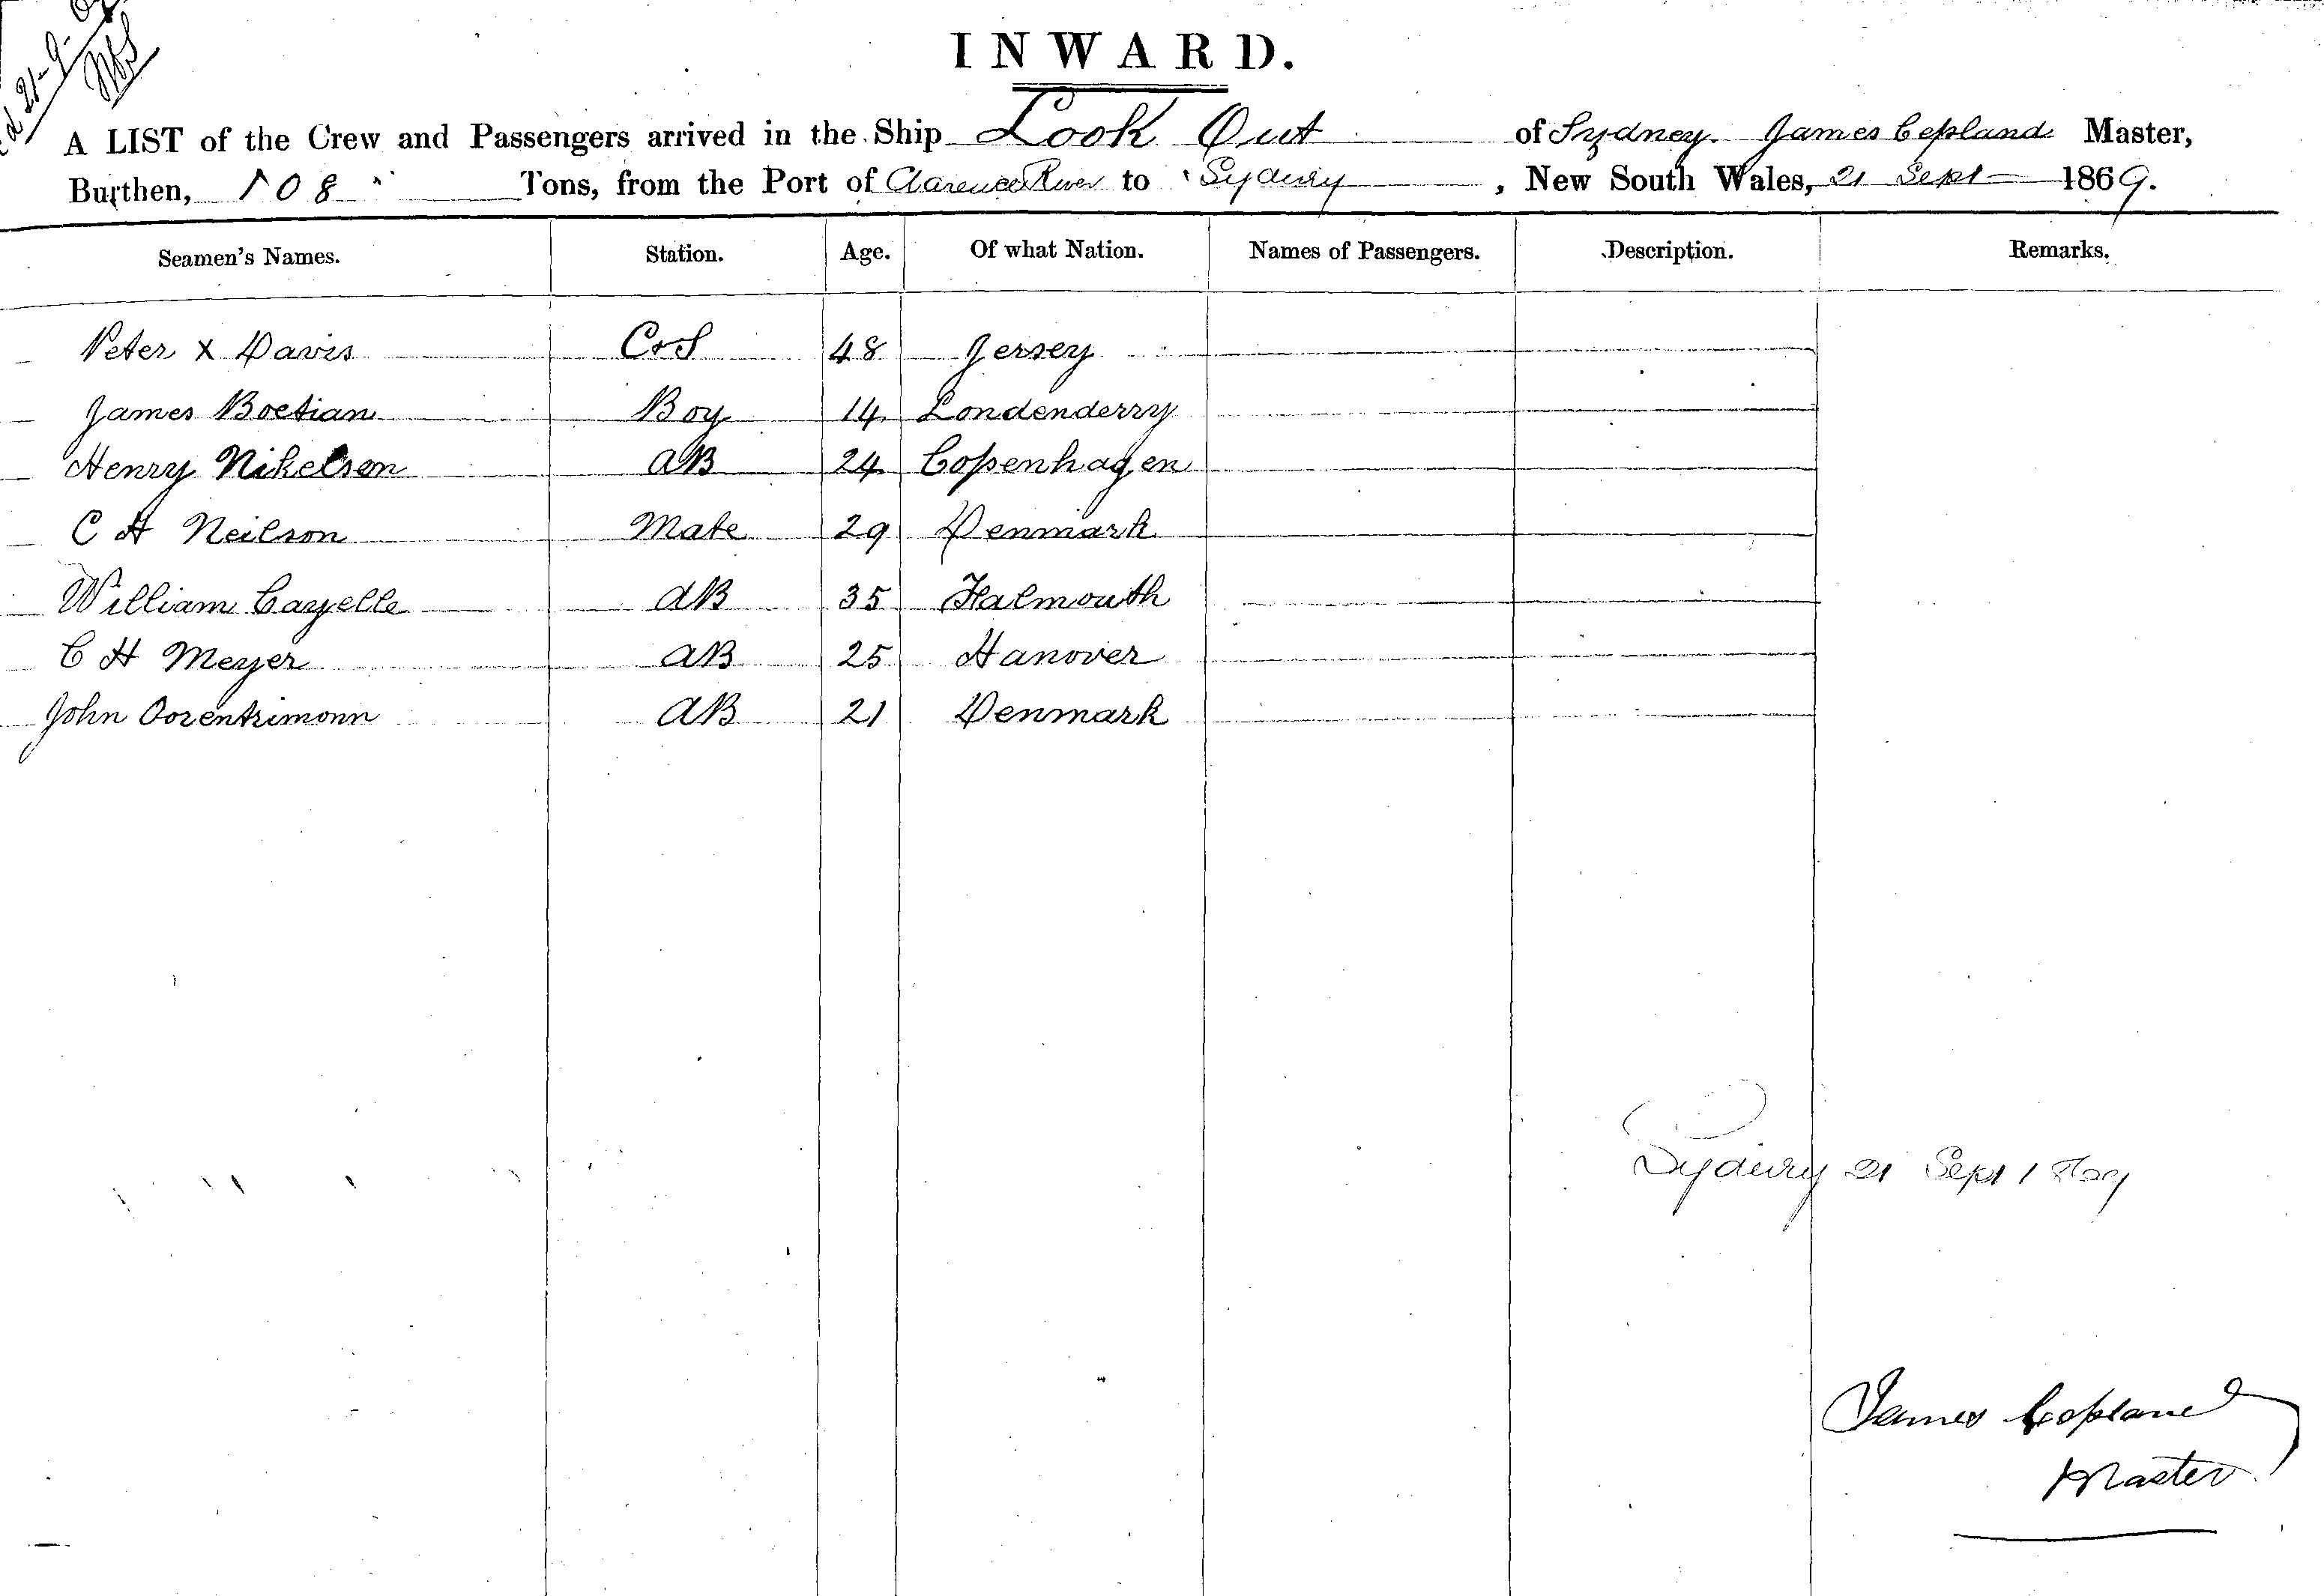 INWARD.
A LIST of the Crew and Passengers arrived in the Ship Look Out of Sydney. James Copland Master,
Burthen, 108 Tons, from the Port of Clarence River to Sydney, New South Wales, 21 Sept 1869.
Seamen's Names. Station. Age. Of what Nation. Names of Passengers. Description. Remarks.
Peter X Davis C&S 48 Jersey
James Boetian Boy 14 Londenderry
Henry Nikelson AB 24 Copenhagen
C H Neilson Mate 29 Denmark
William Cayelle AB 35 Falmouth
C H Meyer AB 25 Hanover
John AB 21 Denmark
Sydney 21 Sept 1869
James Copland
Master